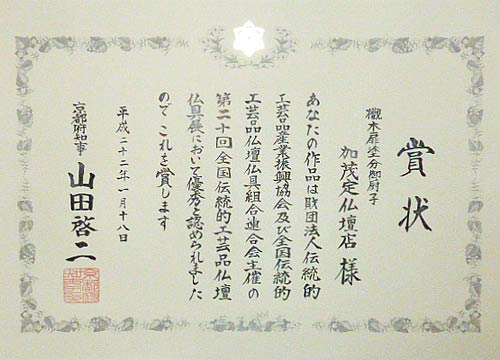 賞状
欅木扉塗分御厨子
加茂定仏壇店 様
あなたの作品は財団法人伝統的
工芸品産業振興協会及び全国伝統的
工芸品仏壇仏具組合連合会主催の
第二十回全国伝統的工芸品仏壇
仏具展において優秀と認められました
ので これを賞します
平成二十二年一月十八日
京都府知事 山田啓二
京都府知事之印